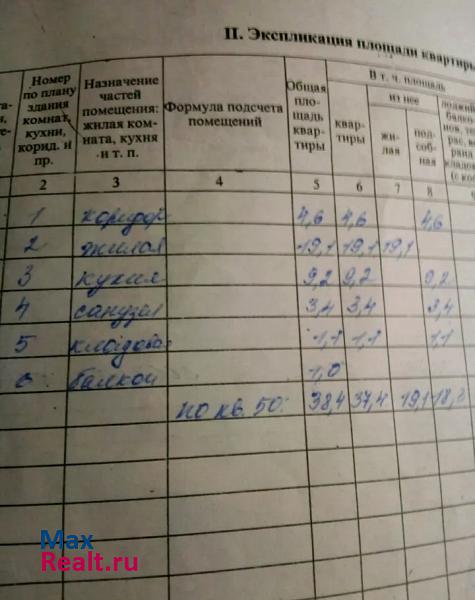 II. Экспликация площади квартиры
Номер по плану здания комнат, кухни, корид. и пр.
Назначение частей помещения: жилая комната, кухня и т. п.
Формула подсчета помещений
Общая площадь квартиры
В т. ч. площадь
квартиры
из нее
жилая
подсобная
2 3 4 5 6 7 8
1 коридор 4,6 4,6 4,6
2 жилая 19,1 19,1 19,1
3 кухня 9,2 9,2 9,2
4 санузел 3,4 3,4 3,4
5 1,1 1,1 1,1
6 балкон 1,0
по кв. 50: 38,4 37,4 19,1 18,3
Max
Realt.ru